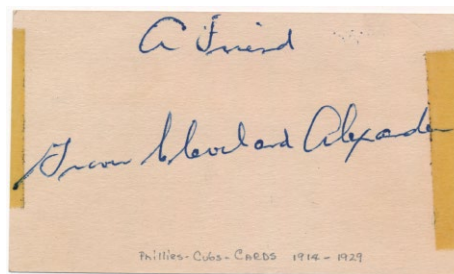 A Friend
Grover Cleveland Alexander
Phillies-Cubs-CARDS 1914-1929